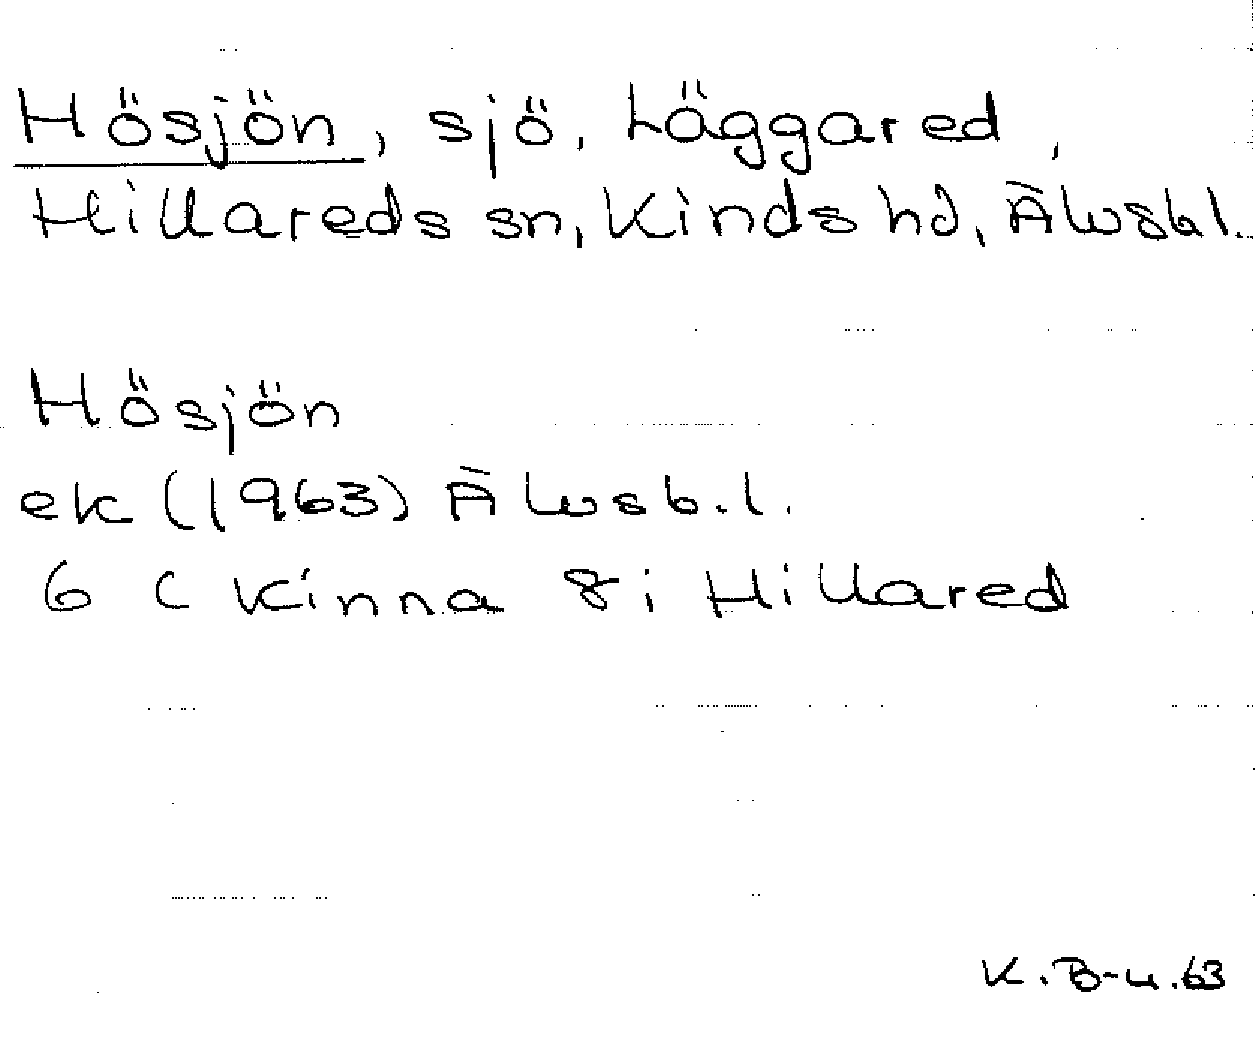 Hösjön, sjö, Läggared,
Hillareds sn, Kinds hd, Älvsbl.
Hösjön
ek (1963) Älvsb.l.
6 C Kinna 8 i Hillared
K.B-u.63